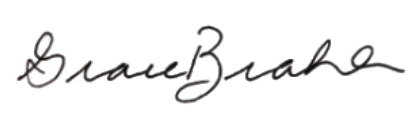 Grace Braher